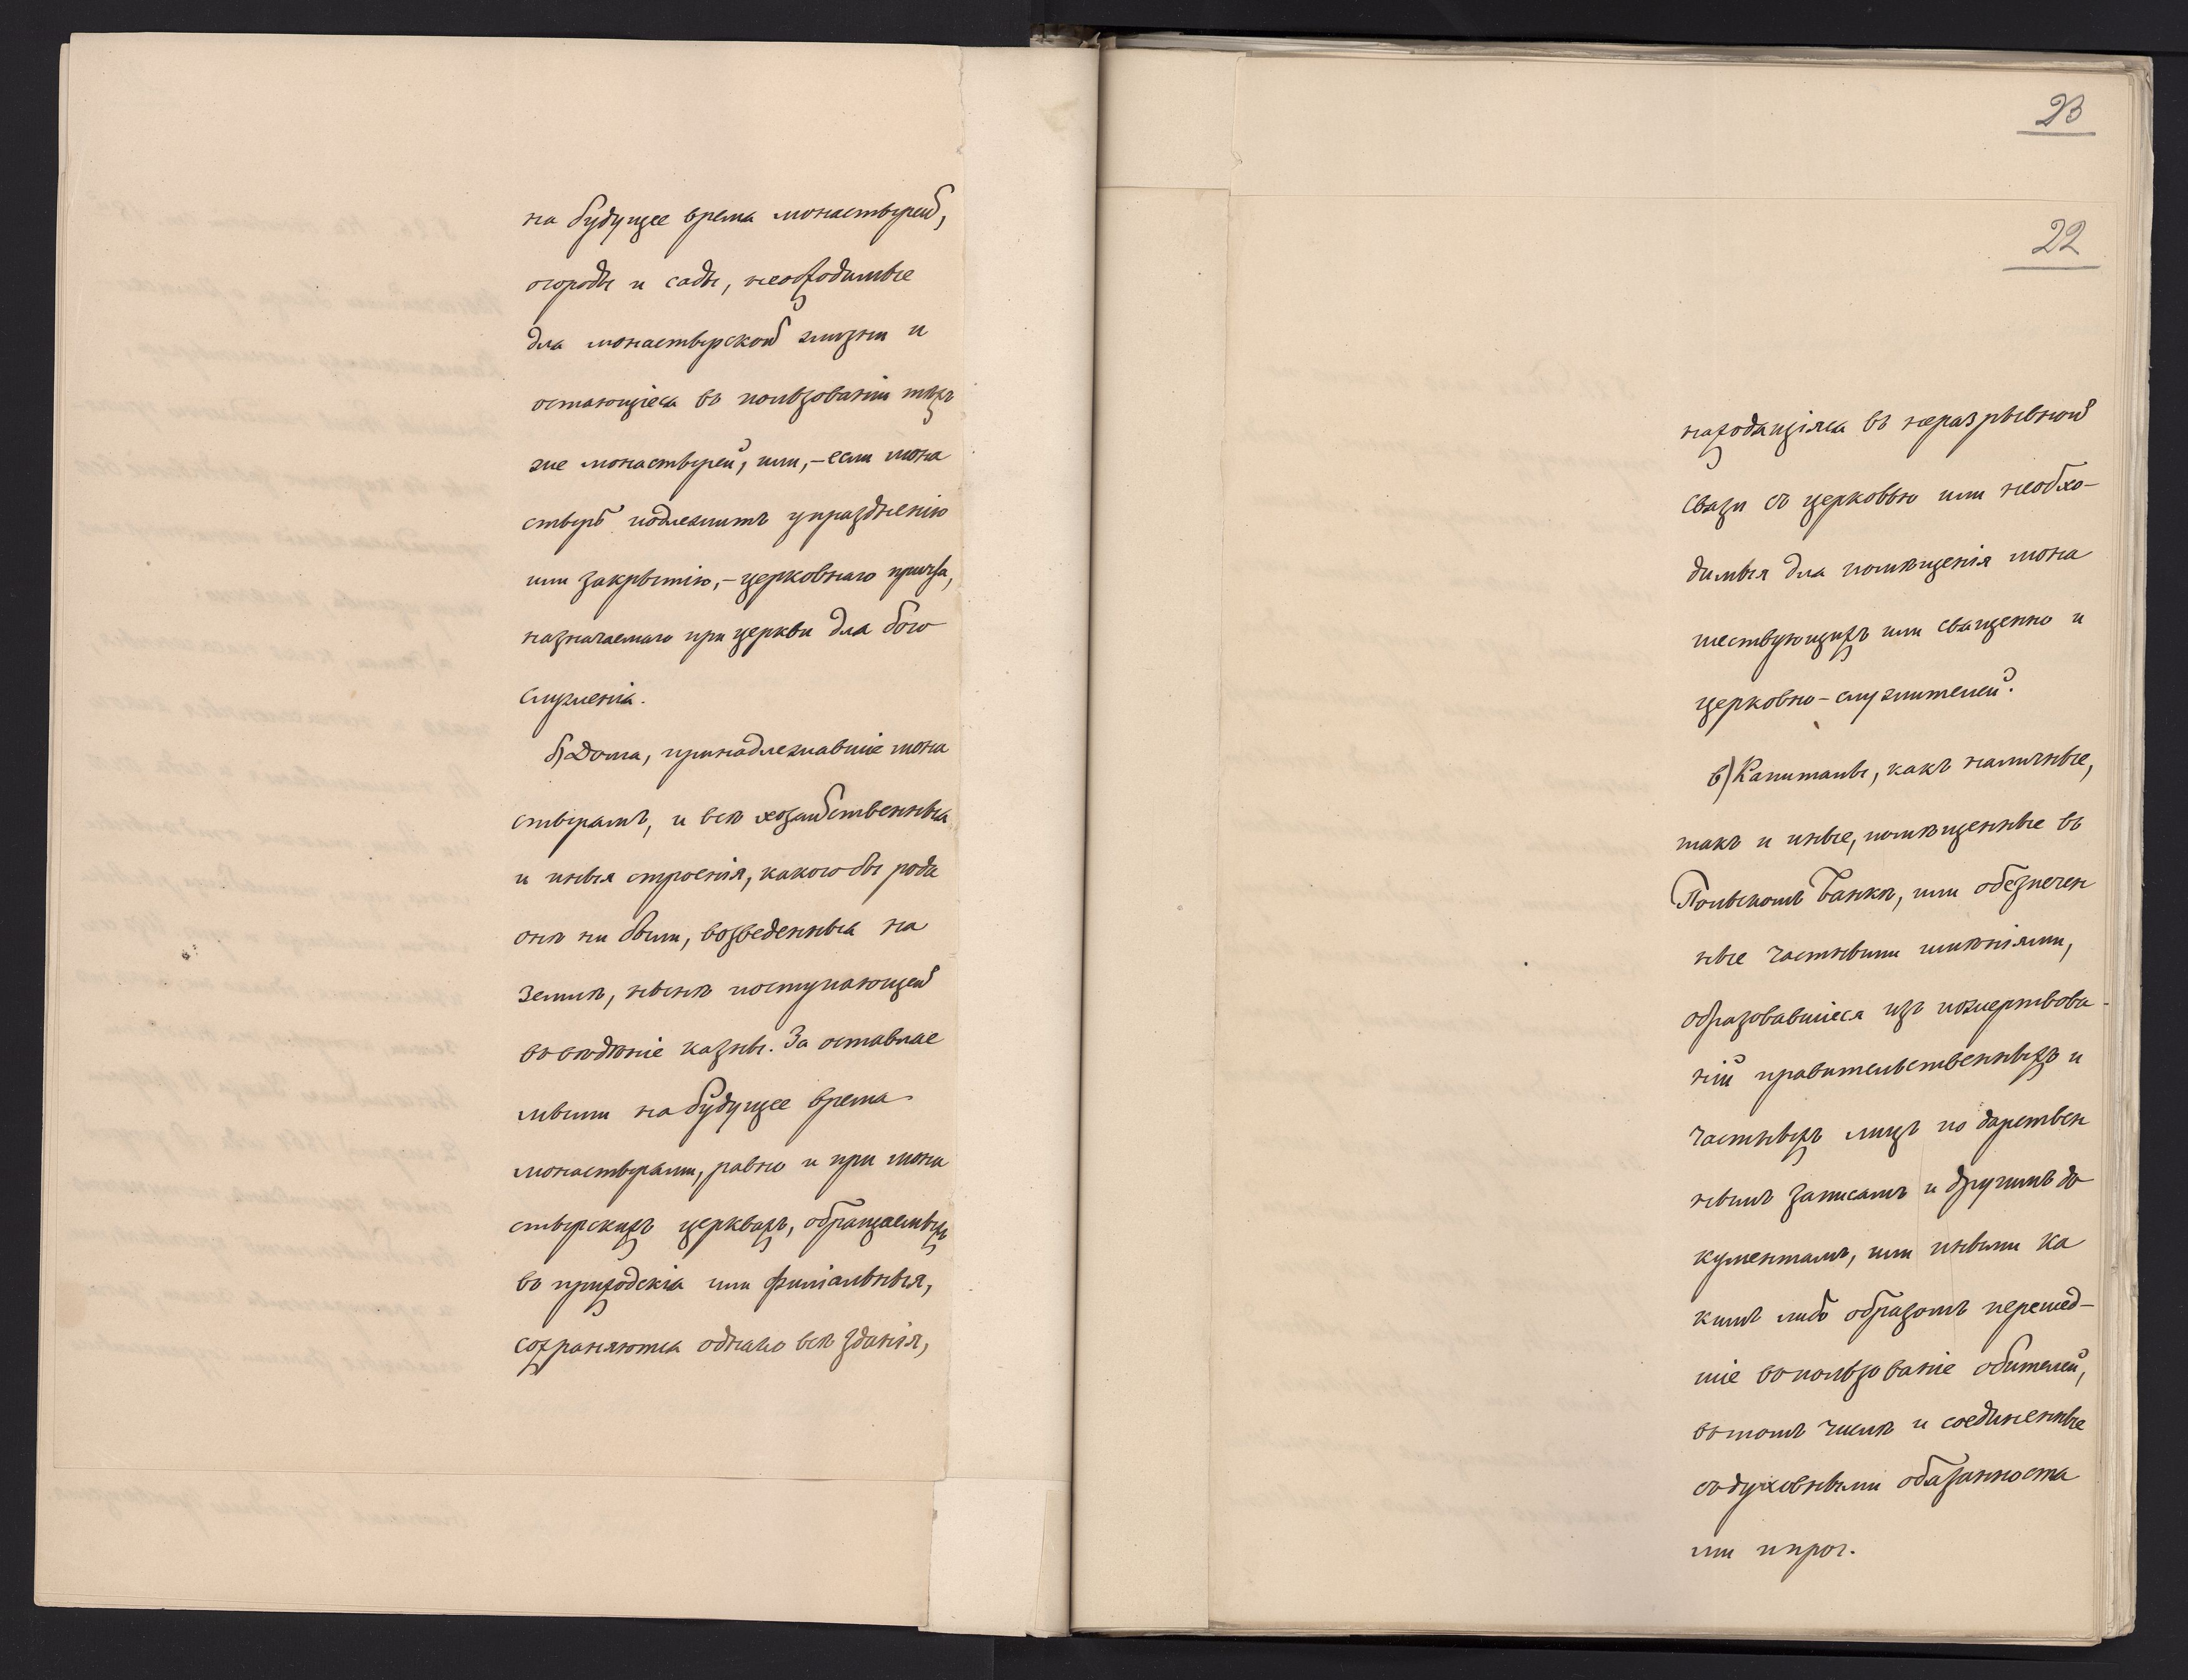 на будущее время монастырей,
огороды и сады, необходимые
для монастырской жизни и
остающіеся въ пользованіи тѣхъ
же монастырей, или, – если мона
стырь подлежитъ упраздненію
или закрытію, – церковнаго причта,
назначаемаго при церкви для бого
служенія.
б) Дома, принадлежавшіе мона
стырямъ, и всѣ хозяйственныя
и иныя строенія, какого бы рода
онѣ ни были, возведенныя на
землѣ, нынѣ поступающей
въ вѣдѣніе казны. За оставляе
мыми на будущее время
монастырями, равно и при мона
стырскихъ церквахъ, обращаемыхъ
въ приходскія или филіальныя,
сохраняются однако всѣ зданія,
23
22
находящіяся въ неразрывной
связи съ церковью или необхо-
димыя для помѣщенія мона
шествующихъ или священно и
церковно-служителей.
в) Капиталы, какъ наличные,
такъ и иные, помѣщенные въ
Польскомъ Банкѣ, или обезпечен
ные частными имѣніями,
образовавшіеся изъ пожертвова-
ній правительственныхъ и
частныхъ лицъ по дарствен
нымъ записамъ и другимъ до
кументамъ, или инымъ ка
кимъ либо образомъ перешед-
шіе въ пользованіе обителей,
въ томъ числѣ и соединенные
съ духовными обязанностя
ми и проч.